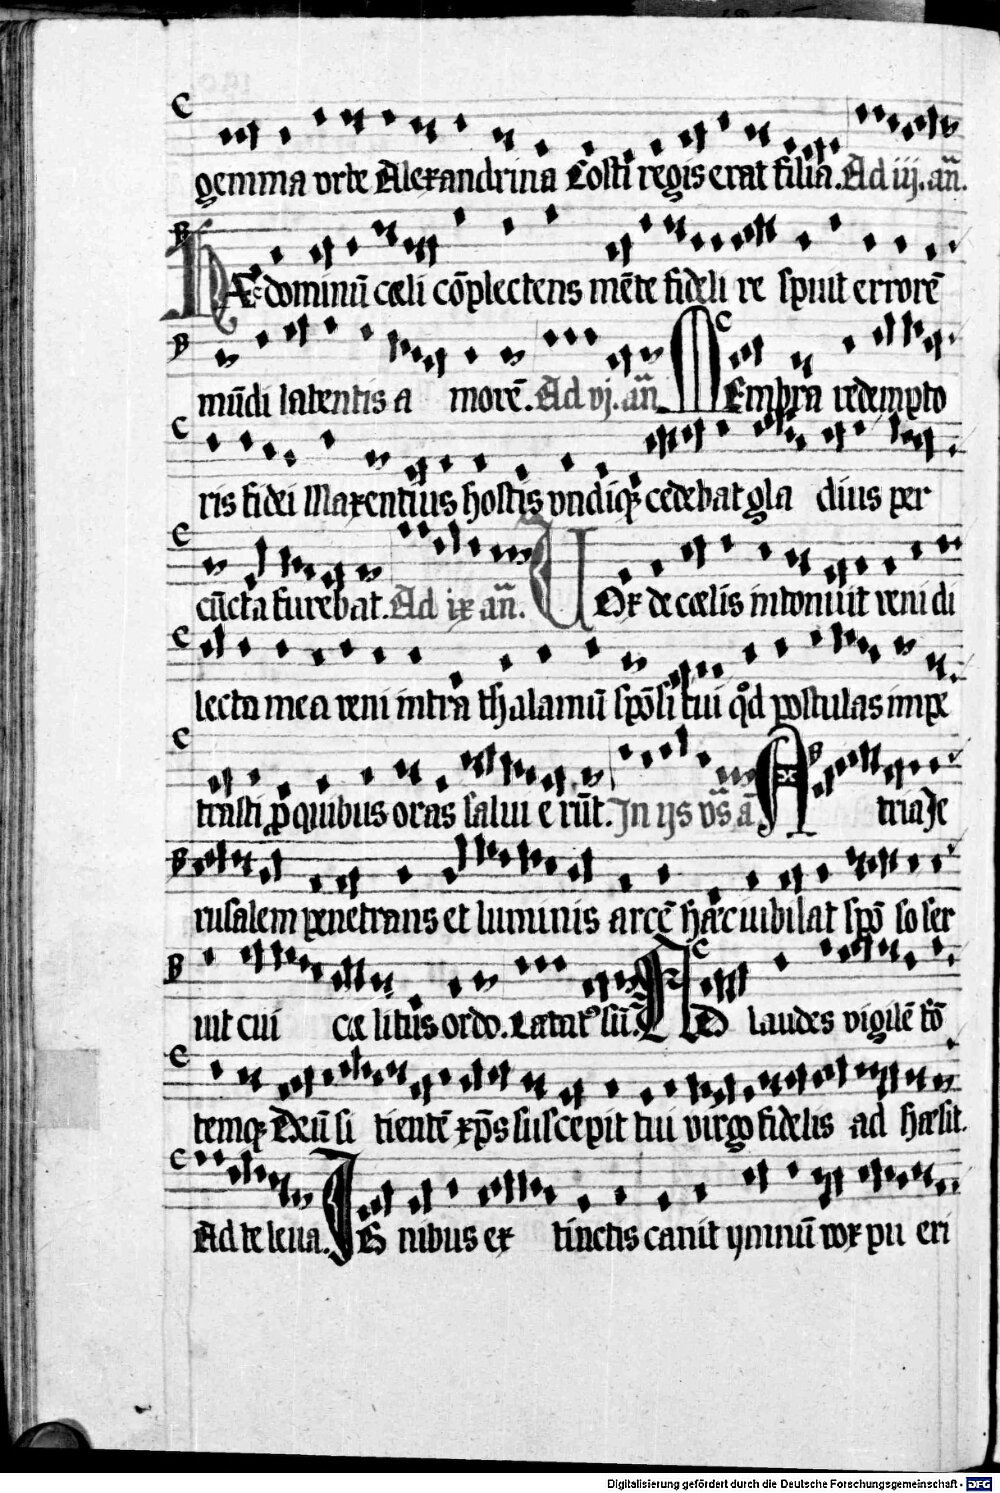 gemma vrbe Alexandrina Costi regis erat filia. Ad iij. an̄.
HÆc dominū cæli cōplectens mēte fideli re spuit errorē
mūdi labentis a morē. Ad vj. an̄ MEmbra redempto
ris fidei Maxentius hostis vndiqꝫ cedebat gla dius per
cūcta furebat. Ad ix an̄. VOx de cœlis intonuit veni di
lecta mea veni intra thalamū spōsi tui qd postulas impe
trasti ꝓ quibus oras salui e rūt. In ijs vs̄ a ATria Je
rusalem penetrans et luminis arcē hæc iubilat spō so ser
uit cui cæ litus ordo. Lætatꝰ sū. AD laudes vigilē tō
temqꝫ Deū si tientē xp̄s suscepit tui virgo fidelis ad hæsit.
Ad te leua. IG nibus ex tinctis canit ymnū vox pu eri
Digitalisierung gefördert durch die Deutsche Forschungsgemeinschaft - DFG